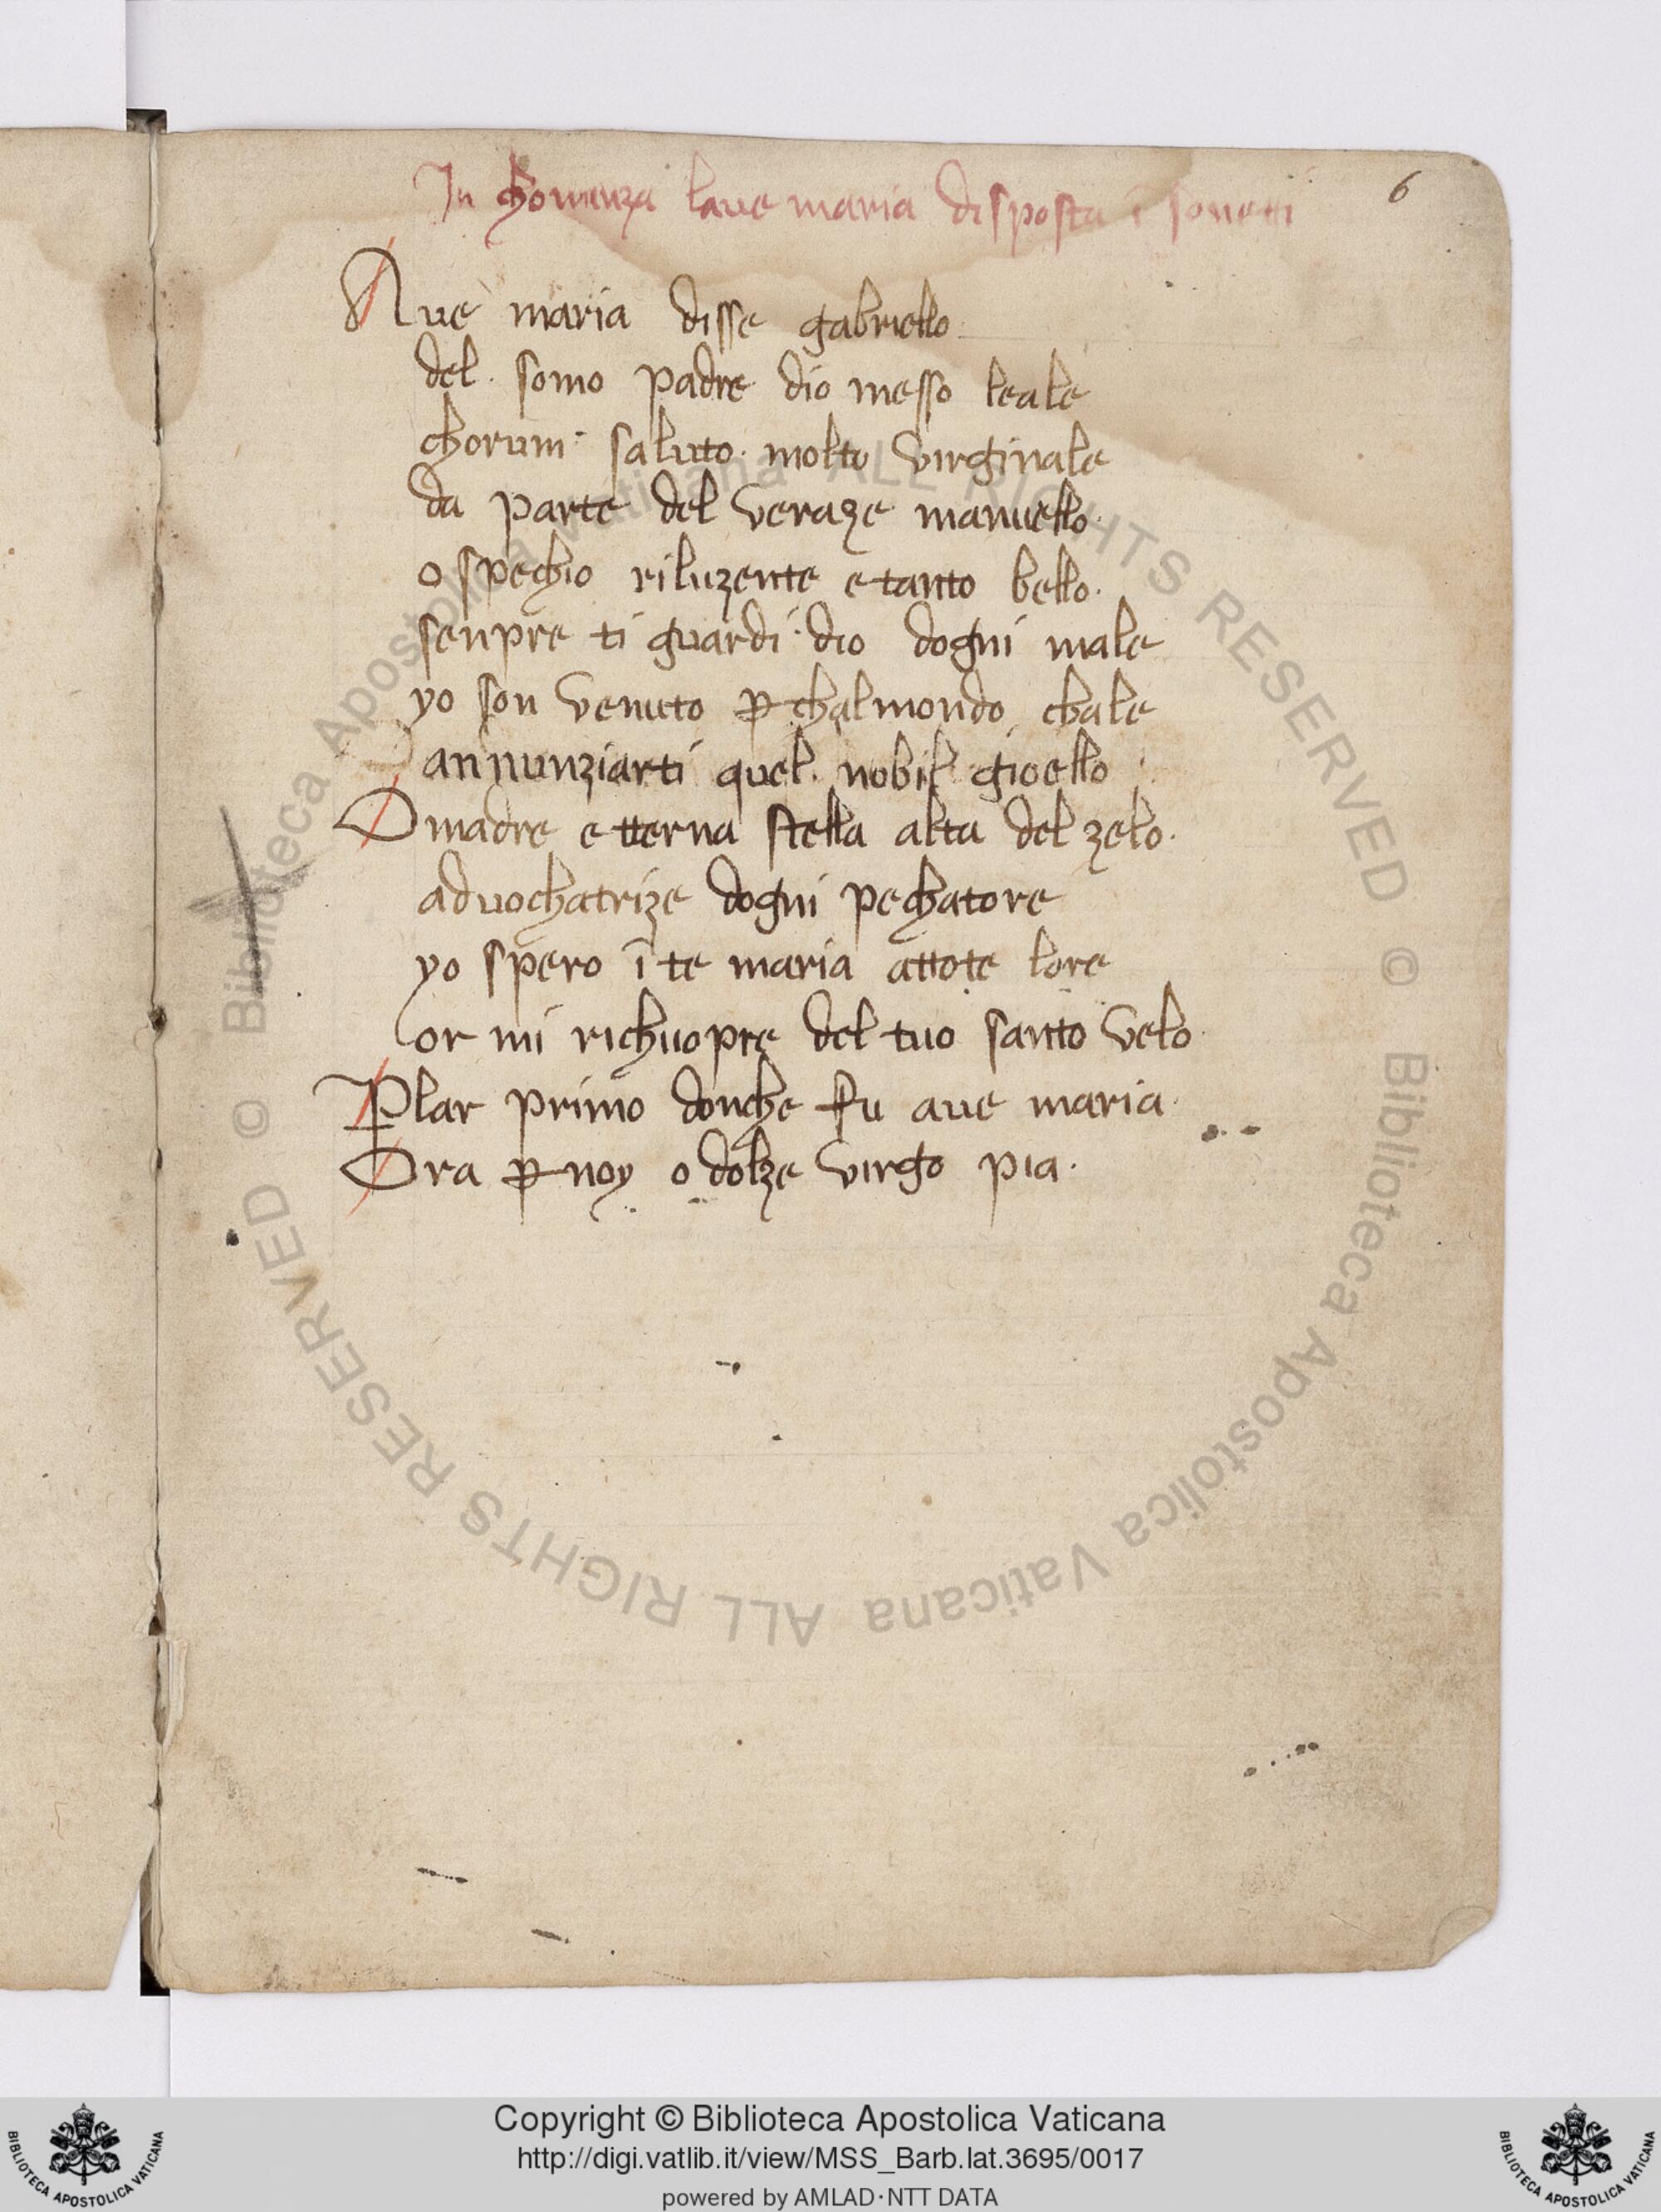 In chomenza laue maria disposta ī sonetti
6
Aue maria disse gabriello
del somo padre dio messo leale
chorum saluto molto virginale
da parte del veraze manuello
o spechio riluzente e tanto bello
senpre ti guardi dio dogni male
yo son venuto ꝑ chalmondo chale
annunziarti quel nobil gioello
O madre etterna stella alta del zelo
aduochatrize dogni pechatore
yo spero ī te maria attote lore
or mi richuopre del tuo santo velo
Plar primo donche fu aue maria
Ora ꝑ noy o dolze virgo pia
© Biblioteca Apostolica Vaticana ALL RIGHTS RESERVED © Biblioteca Apostolica Vaticana ALL RIGHTS RESERVED
BIBLIOTECA APOSTOLICA VATICANA
Copyright © Biblioteca Apostolica Vaticana
http://digi.vatlib.it/view/MSS_Barb.lat.3695/0017
powered by AMLAD·NTT DATA
BIBLIOTECA APOSTOLICA VATICANA